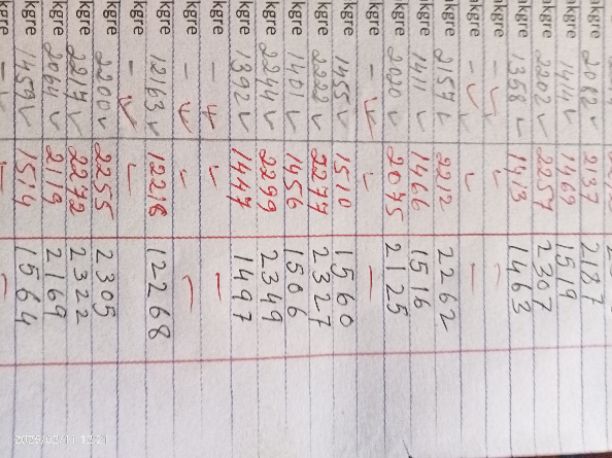 akgre 2082 ✓ 2137 2187
akgre 1414 ✓ 1469 1519
akgre 2202 ✓ 2257 2307
akgre 1358 ✓ 1413 1463
akgre – ✓ – –
akgre – ✓ ✓ –
akgre 2157 ✓ 2212 2262
akgre 1411 ✓ 1466 1516
akgre 2020 ✓ 2075 2125
akgre – ✓ ✓ –
akgre 1455 ✓ 1510 1560
akgre 2222 ✓ 2277 2327
akgre 1401 ✓ 1456 1506
akgre 2244 ✓ 2299 2349
akgre 1392 ✓ 1447 1497
kgre – ✓ ✓ –
kgre – ✓ ✓ –
kgre 12163 ✓ 12218 12268
kgre – ✓ ✓
kgre 2200 ✓ 2255 2305
kgre 2217 ✓ 2272 2322
kgre 2064 ✓ 2119 2169
kgre 1459 ✓ 1514 1564
kgre – ✓ ✓ –